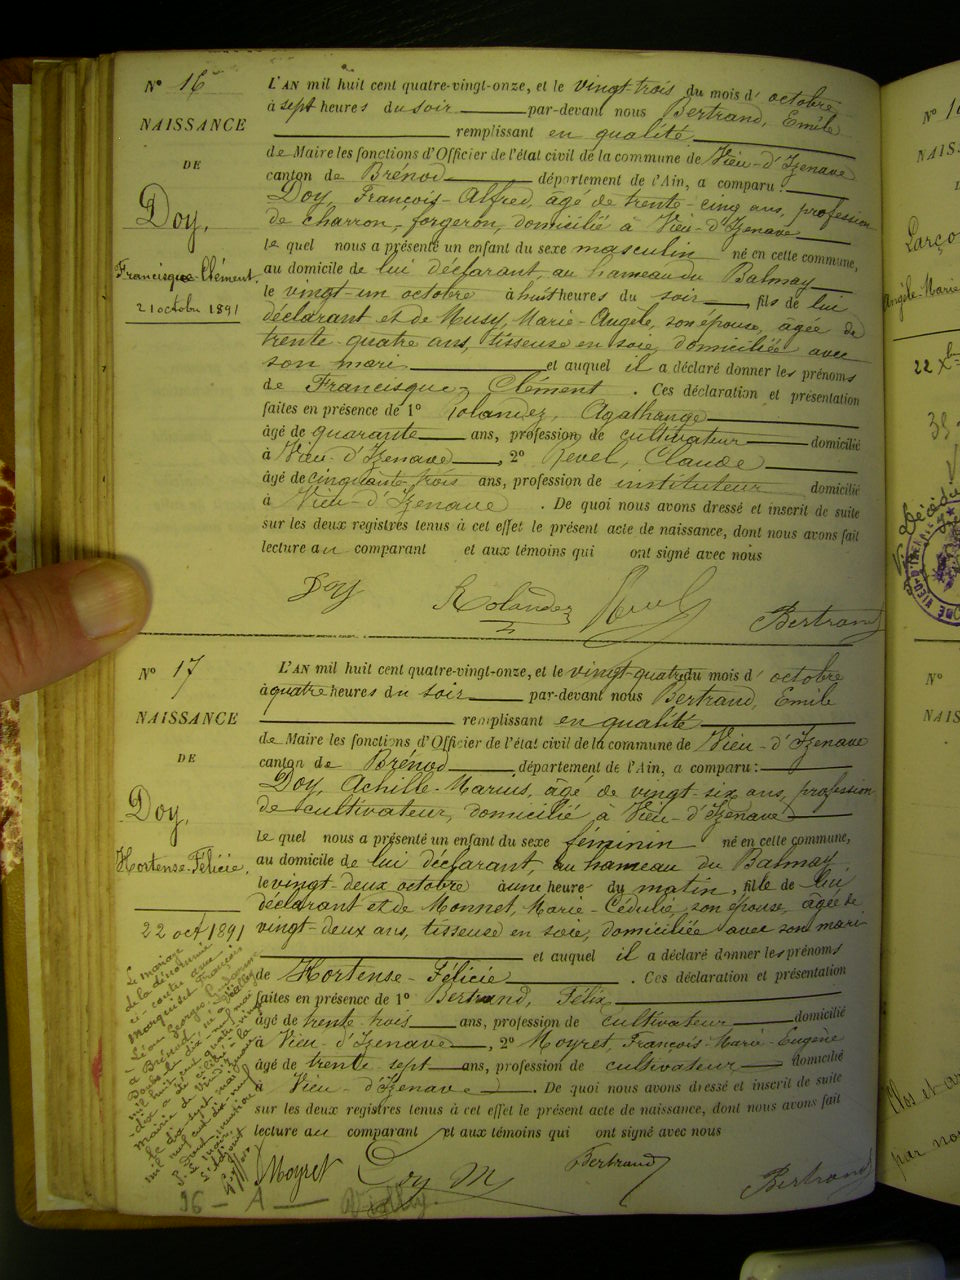 N° 16
NAISSANCE
DE
Doy,
Francisque-Clément.
21 octobre 1891
L'AN mil huit cent quatre-vingt-onze, et le vingt-trois du mois d' octobre
à sept heures du soir par-devant nous Bertrand, Emile
remplissant en qualité
de Maire les fonctions d'Officier de l'état civil de la commune de Vieu-d'Izenave
canton de Brénod département de l'Ain, a comparu :
Doy, François-Alfred, âgé de trente-cinq ans, profession
de charron-forgeron, domicilié à Vieu-d'Izenave
le quel nous a présenté un enfant du sexe masculin né en cette commune,
au domicile de lui déclarant, au hameau du Balmay
le vingt-un octobre à huit heures du soir, fils de lui
déclarant et de Musy, Marie-Angèle, son épouse, âgée de
trente-quatre ans, tisseuse en soie, domiciliée avec
son mari et auquel il a déclaré donner les prénoms
de Francisque, Clément. Ces déclaration et présentation
faites en présence de 1° Rolandez, Agathange
âgé de quarante ans, profession de cultivateur domicilié
à Vieu-d'Izenave, 2° Revel, Claude
âgé de cinquante-trois ans, profession de instituteur domicilié
à Vieu-d'Izenave. De quoi nous avons dressé et inscrit de suite
sur les deux registres tenus à cet effet le présent acte de naissance, dont nous avons fait
lecture au comparant et aux témoins qui ont signé avec nous
Doy Rolandez Revel Bertrand
N° 17
NAISSANCE
DE
Doy,
Hortense-Félicie.
22 oct 1891
L'AN mil huit cent quatre-vingt-onze, et le vingt-quatre du mois d' octobre
à quatre heures du soir par-devant nous Bertrand, Emile
remplissant en qualité
de Maire les fonctions d'Officier de l'état civil de la commune de Vieu-d'Izenave
canton de Brénod département de l'Ain, a comparu :
Doy, Achille-Marius, âgé de vingt-six ans, profession
de cultivateur, domicilié à Vieu-d'Izenave
le quel nous a présenté un enfant du sexe féminin né en cette commune,
au domicile de lui déclarant, au hameau du Balmay
le vingt-deux octobre à une heure du matin, fille de lui
déclarant et de Monnet, Marie-Cédulie, son épouse, âgée de
vingt-deux ans, tisseuse en soie, domiciliée avec son mari
et auquel il a déclaré donner les prénoms
de Hortense-Félicie. Ces déclaration et présentation
faites en présence de 1° Bertrand, Félix
âgé de trente trois ans, profession de cultivateur domicilié
à Vieu-d'Izenave, 2° Moyret, François-Marie-Eugène
âgé de trente sept ans, profession de cultivateur domicilié
à Vieu-d'Izenave. De quoi nous avons dressé et inscrit de suite
sur les deux registres tenus à cet effet le présent acte de naissance, dont nous avons fait
lecture au comparant et aux témoins qui ont signé avec nous
Moyret Doy M Bertrand Bertrand
Le mariage
de la dénommée
ci-contre avec
Marquiset François
Léon Georges
à Brénod
mil huit cent quatre vingt
dix a été célébré à la
mairie de
le dix-sept mai
mil neuf cent dix-neuf
96 - A
22 Xb